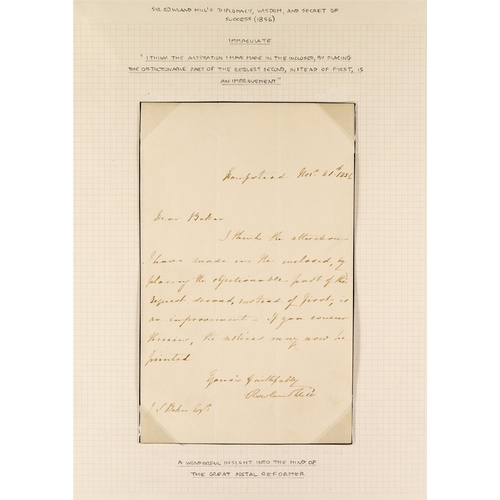 SIR ROWLAND HILL'S DIPLOMACY, WISDOM, AND SECRET OF
SUCCESS (1856)
IMMACULATE
"I THINK THE ALTERATION I HAVE MADE IN THE INCLOSED, BY PLACING
THE OBJECTIONABLE PART OF THE REQUEST SECOND, INSTEAD OF FIRST, IS
AN IMPROVEMENT"
Hampstead Novr. 21st 1856
Dear Baker
I think the alteration
I have made in the inclosed, by
placing the objectionable part of the
request second, instead of first, is
an improvement - If you concur
therein, the notices may now be
printed
Yours faithfully
Rowland Hill
J S Baker Esqr.
A WONDERFUL INSIGHT INTO THE MIND OF
THE GREAT POSTAL REFORMER